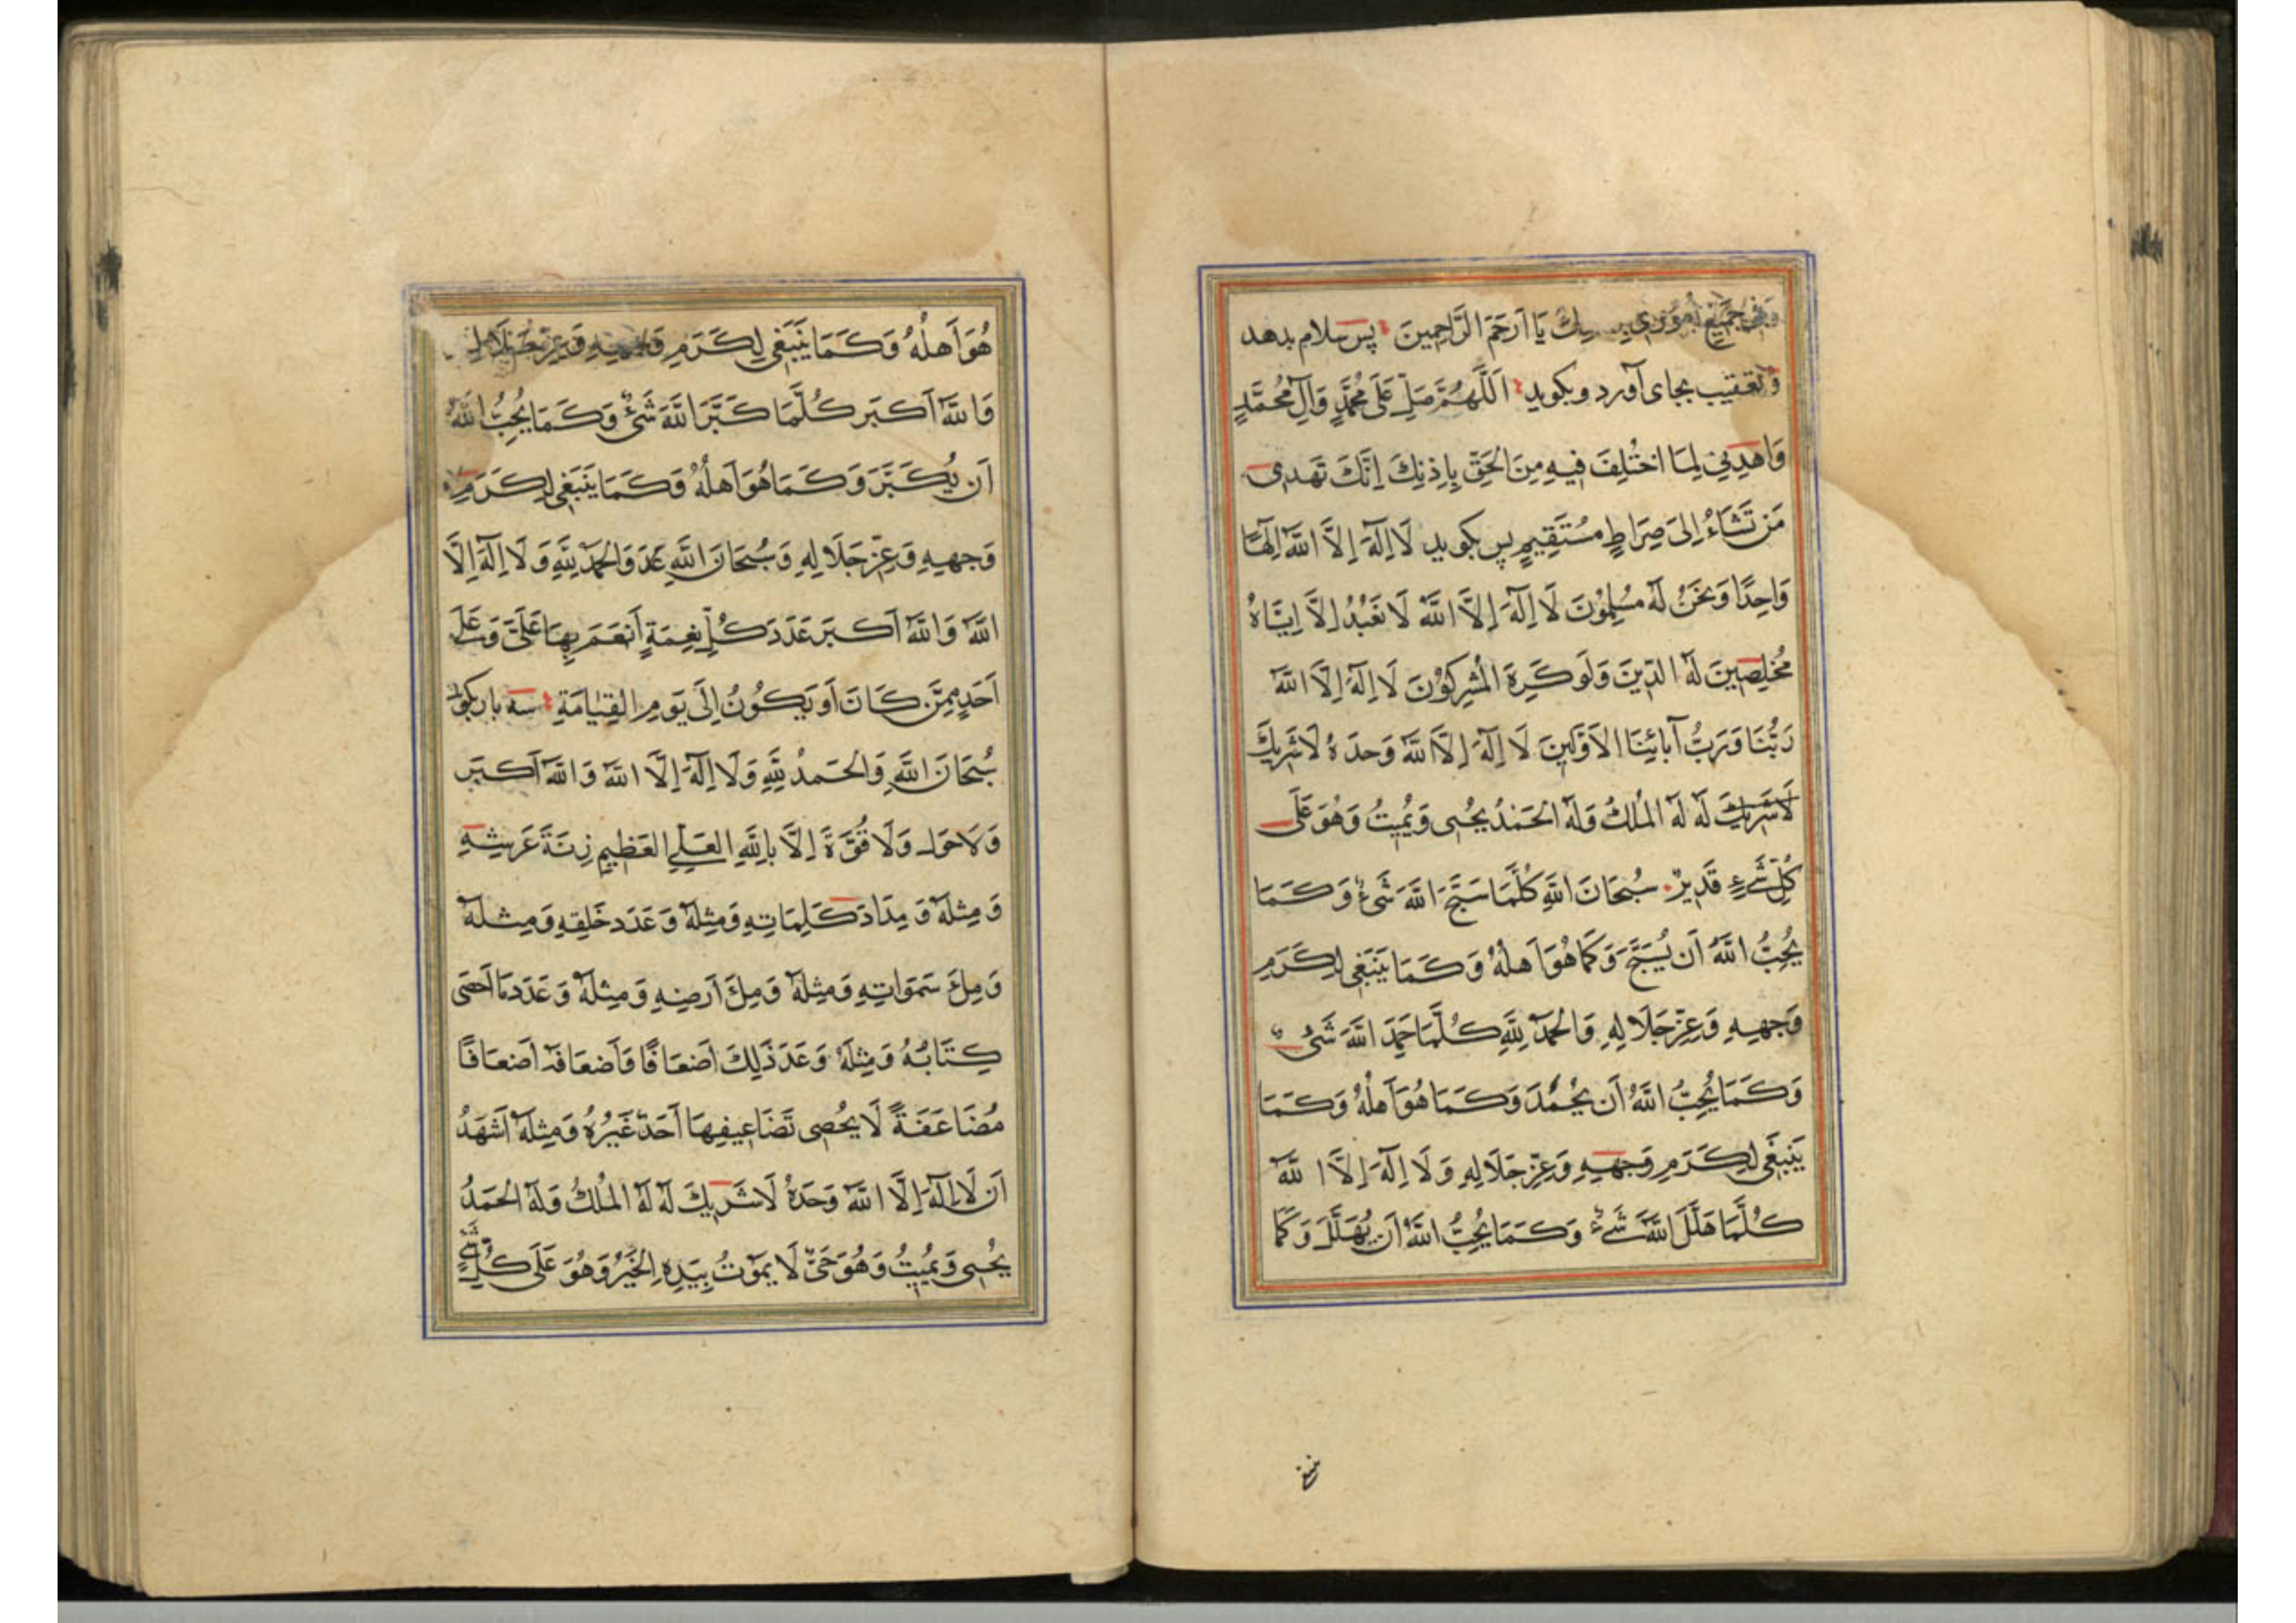 وَفِي جَمِيعِ أُمُورِي يَا أَرْحَمَ الرَّاحِمِينَ پس سلام بدهد
وتعقیب بجای آورد و بکوید اَللَّهُمَّ صَلِّ عَلَى مُحَمَّدٍ وَآلِ مُحَمَّدٍ
وَاهْدِنِي لِمَا اخْتُلِفَ فِيهِ مِنَ الْحَقِّ بِإِذْنِكَ إِنَّكَ تَهْدِى
مَنْ تَشَاءُ إِلَى صِرَاطٍ مُسْتَقِيمٍ پس بکوید لَا إِلَهَ إِلَّا اللَّهُ إِلَهًا
وَاحِدًا وَنَحْنُ لَهُ مُسْلِمُونَ لَا إِلَهَ إِلَّا اللَّهُ لَا نَعْبُدُ إِلَّا إِيَّاهُ
مُخْلِصِينَ لَهُ الدِّينَ وَلَوْ كَرِهَ الْمُشْرِكُونَ لَا إِلَهَ إِلَّا اللَّهُ
رَبُّنَا وَرَبُّ آبَائِنَا الْأَوَّلِينَ لَا إِلَهَ إِلَّا اللَّهُ وَحْدَهُ لَا شَرِيكَ
لَا شَرِيكَ لَهُ لَهُ الْمُلْكُ وَلَهُ الْحَمْدُ يُحْيِى وَيُمِيتُ وَهُوَ عَلَى
كُلِّ شَيْءٍ قَدِيرٌ سُبْحَانَ اللَّهِ كُلَّمَا سَبَّحَ اللَّهَ شَيْءٌ وَكَمَا
يُحِبُّ اللَّهُ أَنْ يُسَبَّحَ وَكَمَا هُوَ أَهْلُهُ وَكَمَا يَنْبَغِي لِكَرَمِ
وَجْهِهِ وَعِزِّ جَلَالِهِ وَالْحَمْدُ لِلَّهِ كُلَّمَا حَمِدَ اللَّهَ شَيْءٌ
وَكَمَا يُحِبُّ اللَّهُ أَنْ يُحْمَدَ وَكَمَا هُوَ أَهْلُهُ وَكَمَا
يَنْبَغِي لِكَرَمِ وَجْهِهِ وَعِزِّ جَلَالِهِ وَلَا إِلَهَ إِلَّا اللَّهُ
كُلَّمَا هَلَّلَ اللَّهَ شَيْءٌ وَكَمَا يُحِبُّ اللَّهُ أَنْ يُهَلَّلَ وَكَمَا
هُوَ أَهْلُهُ وَكَمَا يَنْبَغِي لِكَرَمِ وَجْهِهِ وَعِزِّ جَلَالِهِ
وَاللَّهُ أَكْبَرُ كُلَّمَا كَبَّرَ اللَّهَ شَيْءٌ وَكَمَا يُحِبُّ اللَّهُ
أَنْ يُكَبَّرَ وَكَمَا هُوَ أَهْلُهُ وَكَمَا يَنْبَغِي لِكَرَمِ
وَجْهِهِ وَعِزِّ جَلَالِهِ وَسُبْحَانَ اللَّهِ عَدَدَ وَالْحَمْدُ لِلَّهِ وَلَا إِلَهَ إِلَّا
اللَّهُ وَاللَّهُ أَكْبَرُ عَدَدَ كُلِّ نِعْمَةٍ أَنْعَمَ بِهَا عَلَيَّ وَعَلَى
أَحَدٍ مِمَّنْ كَانَ أَوْ يَكُونُ إِلَى يَوْمِ الْقِيَامَةِ سه بار بکوید
سُبْحَانَ اللَّهِ وَالْحَمْدُ لِلَّهِ وَلَا إِلَهَ إِلَّا اللَّهُ وَاللَّهُ أَكْبَرُ
وَلَا حَوْلَ وَلَا قُوَّةَ إِلَّا بِاللَّهِ الْعَلِيِّ الْعَظِيمِ زِنَةَ عَرْشِهِ
وَمِثْلَهُ وَمِدَادَ كَلِمَاتِهِ وَمِثْلَهُ وَعَدَدَ خَلْقِهِ وَمِثْلَهُ
وَمِلْءَ سَمَوَاتِهِ وَمِثْلَهُ وَمِلْءَ أَرْضِهِ وَمِثْلَهُ وَعَدَدَ مَا أَحْصَى
كِتَابُهُ وَمِثْلَهُ وَعَدَدَ ذَلِكَ أَضْعَافًا وَأَضْعَافَهُ أَضْعَافًا
مُضَاعَفَةً لَا يُحْصِى تَضَاعِيفَهَا أَحَدٌ غَيْرُهُ وَمِثْلَهُ أَشْهَدُ
أَنْ لَا إِلَهَ إِلَّا اللَّهُ وَحْدَهُ لَا شَرِيكَ لَهُ لَهُ الْمُلْكُ وَلَهُ الْحَمْدُ
يُحْيِى وَيُمِيتُ وَهُوَ حَيٌّ لَا يَمُوتُ بِيَدِهِ الْخَيْرُ وَهُوَ عَلَى كُلِّ شَيْءٍ